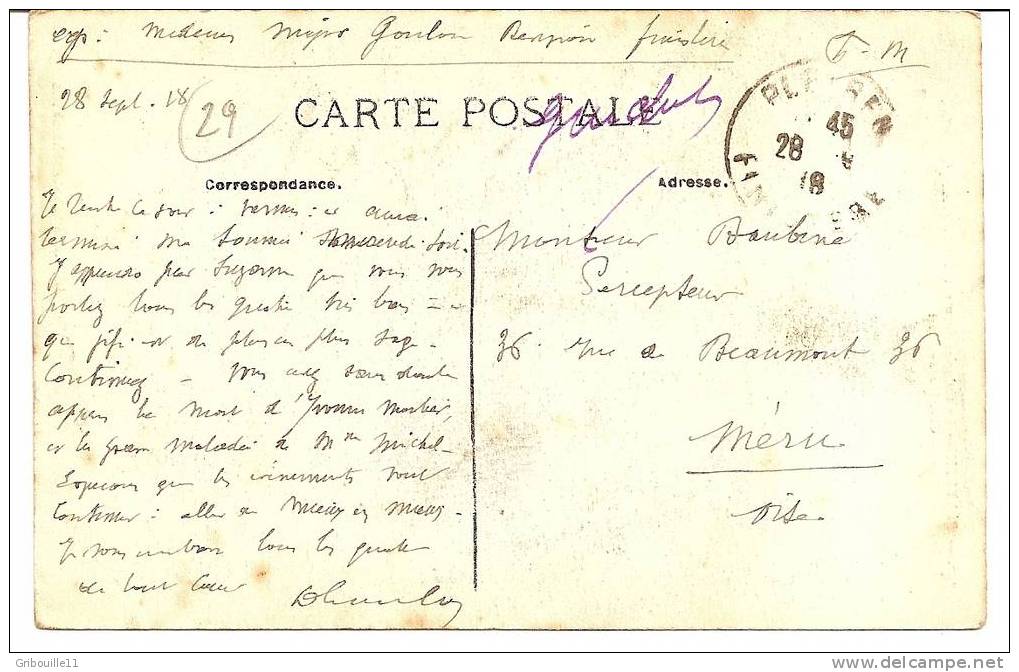 exp: Médecin Major Goulon finistère
F - M
28 Sept. 18
29
CARTE POSTALE
PL EN
45
28
18
Correspondance.
Adresse.
Je rentre ce soir :
terminé ma tournée
J'apprends par Suzanne que vous vous
portez tous les quatre très bien - et
que fifi est de plus en plus sage -
Continuez - Vous avez sans doute
appris la mort d'Yvonne
et la grave maladie de Mme Michel -
Espérons que les événements vont
continuer : aller de mieux en mieux -
Je vous embrasse tous les quatre
de tout cœur
Monsieur
Percepteur
36 rue de Beaumont 36
Méru
Oise
Gribouille11
www.delcampe.net